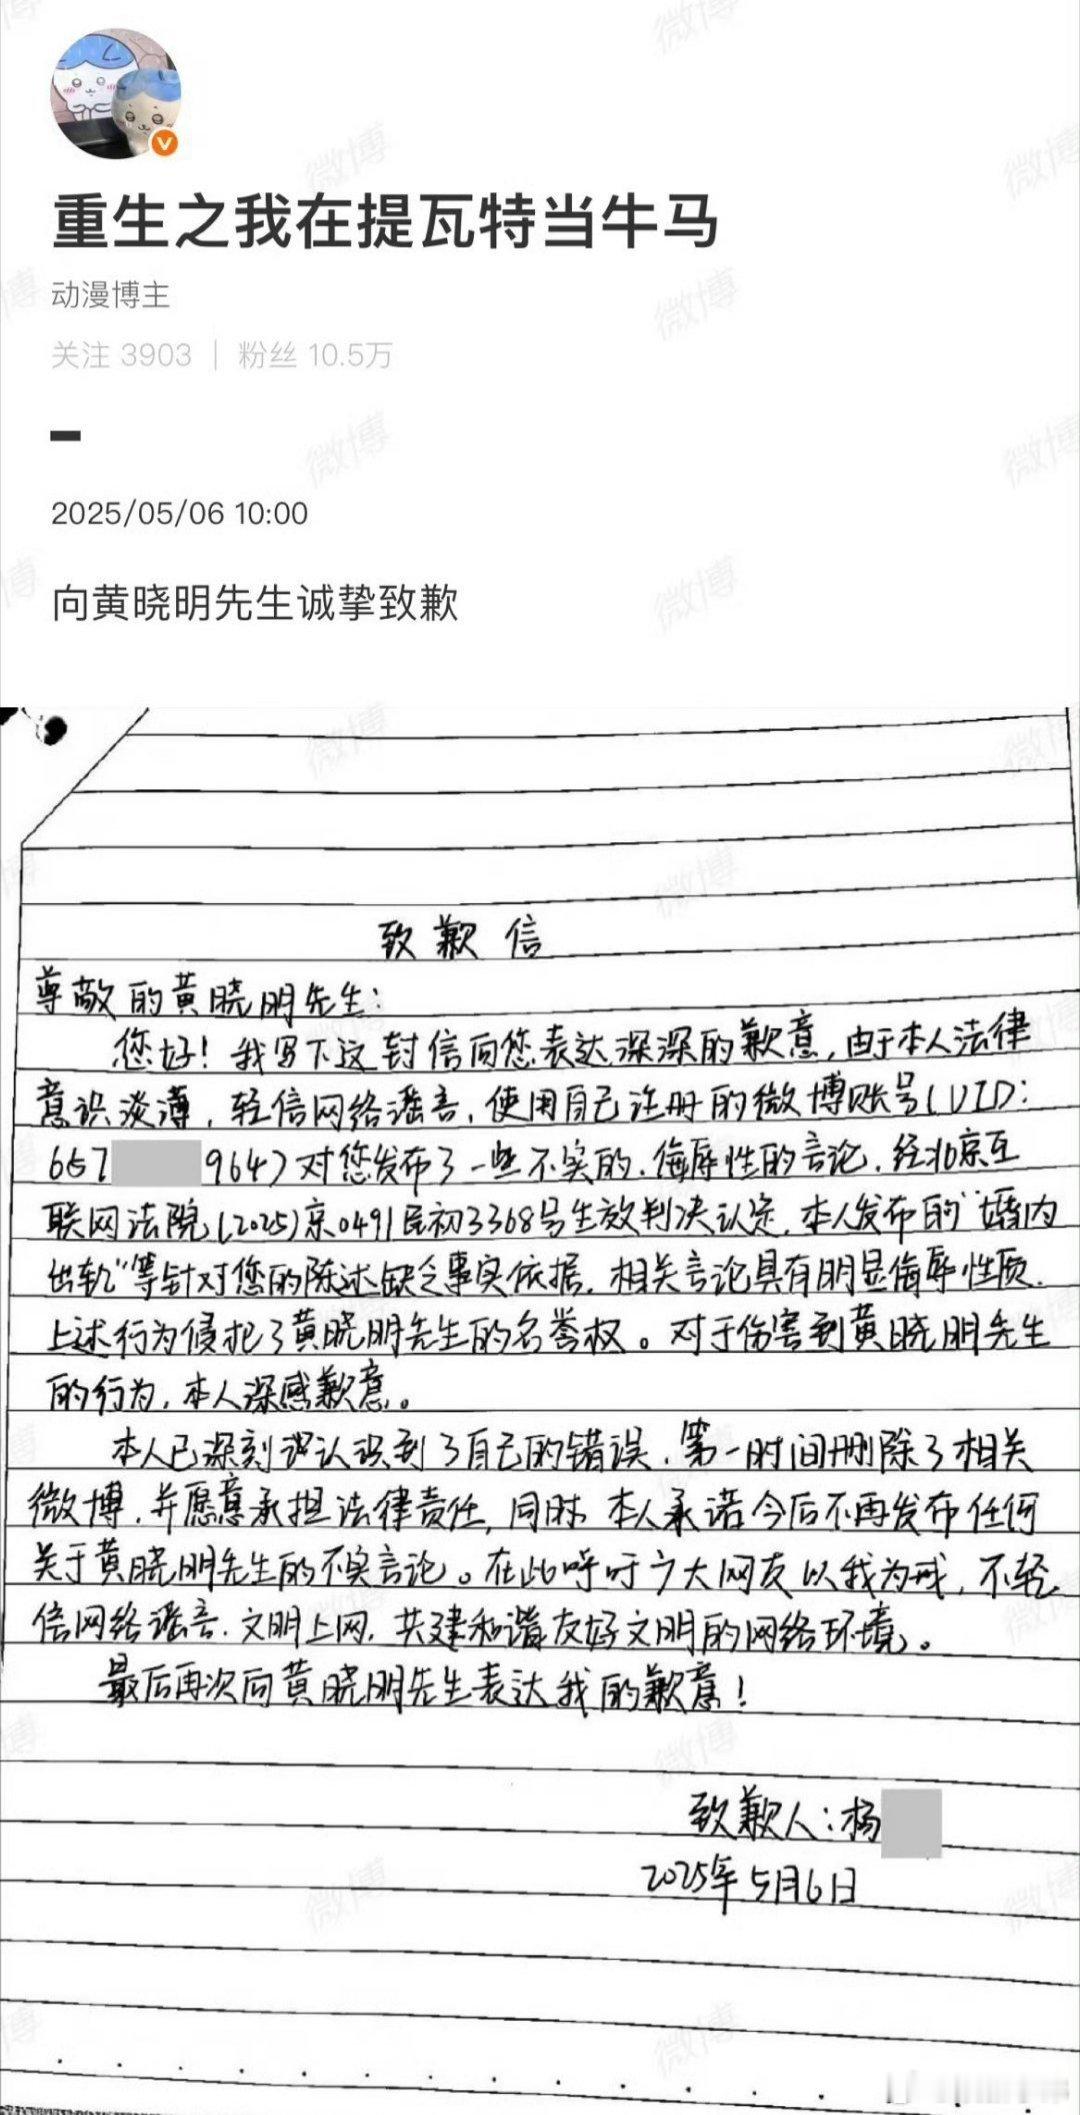 重生之我在提瓦特当牛马
动漫博主
关注 3903 | 粉丝 10.5万
2025/05/06 10:00
向黄晓明先生诚挚致歉
致歉信
尊敬的黄晓明先生：
您好！我写下这封信向您表达深深的歉意，由于本人法律
意识淡薄，轻信网络谣言，使用自己注册的微博账号(UID:
657 9647)对您发布了一些不实的、侮辱性的言论，经北京互
联网法院(2025)京0491民初3368号生效判决认定，本人发布的"婚内
出轨"等针对您的陈述缺乏事实依据，相关言论具有明显侮辱性质，
上述行为侵犯了黄晓明先生的名誉权。对于伤害到黄晓明先生
的行为，本人深感歉意。
本人已深刻认识到了自己的错误，第一时间删除了相关
微博，并愿意承担法律责任，同时，本人承诺今后不再发布任何
关于黄晓明先生的不实言论。在此呼吁广大网友以我为戒，不轻
信网络谣言，文明上网，共建和谐友好文明的网络环境。
最后再次向黄晓明先生表达我的歉意！
致歉人：杨
2025年5月6日
微博